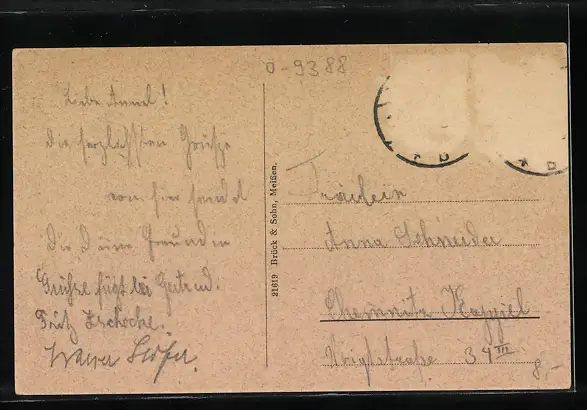 0-9388
Liebe Annel!
die herzlichsten Grüsse
von hier sendet
Dir Deine Freundin
Grüsse fügt bei Gertrud.
Fritz Zschocke.
21619 Brück & Sohn, Meißen.
Fräulein
Anna Schneider
Chemnitz Kappel
34 III
8,-